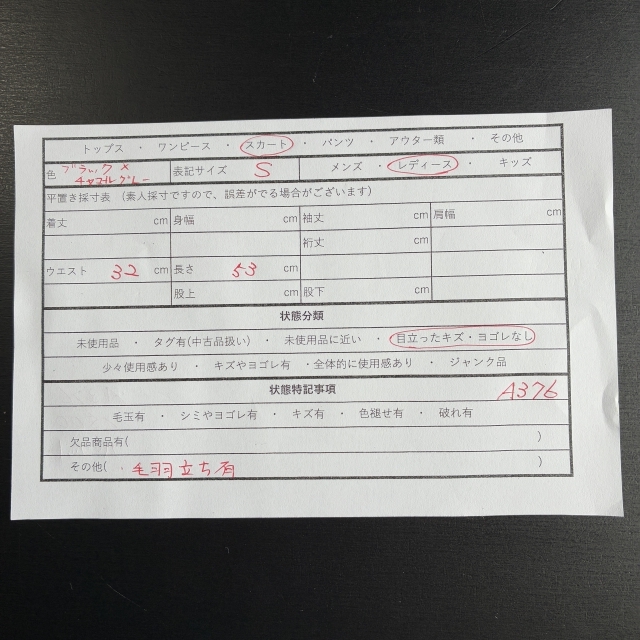 トップス ・ ワンピース ・ スカート ・ パンツ ・ アウター類 ・ その他
色 ブラック×チャコールグレー 表記サイズ S メンズ ・ レディース ・ キッズ
平置き採寸表 (素人採寸ですので、誤差がでる場合がございます)
着丈 cm 身幅 cm 袖丈 cm 肩幅 cm
裄丈 cm
ウエスト 32 cm 長さ 53 cm
股上 cm 股下 cm
状態分類
未使用品 ・ タグ有(中古品扱い) ・ 未使用品に近い ・ 目立ったキズ・ヨゴレなし
少々使用感あり ・ キズやヨゴレ有 ・全体的に使用感あり ・ ジャンク品
状態特記事項 A376
毛玉有 ・ シミやヨゴレ有 ・ キズ有 ・ 色褪せ有 ・ 破れ有
欠品商品有( )
その他( 毛羽立ち有 )